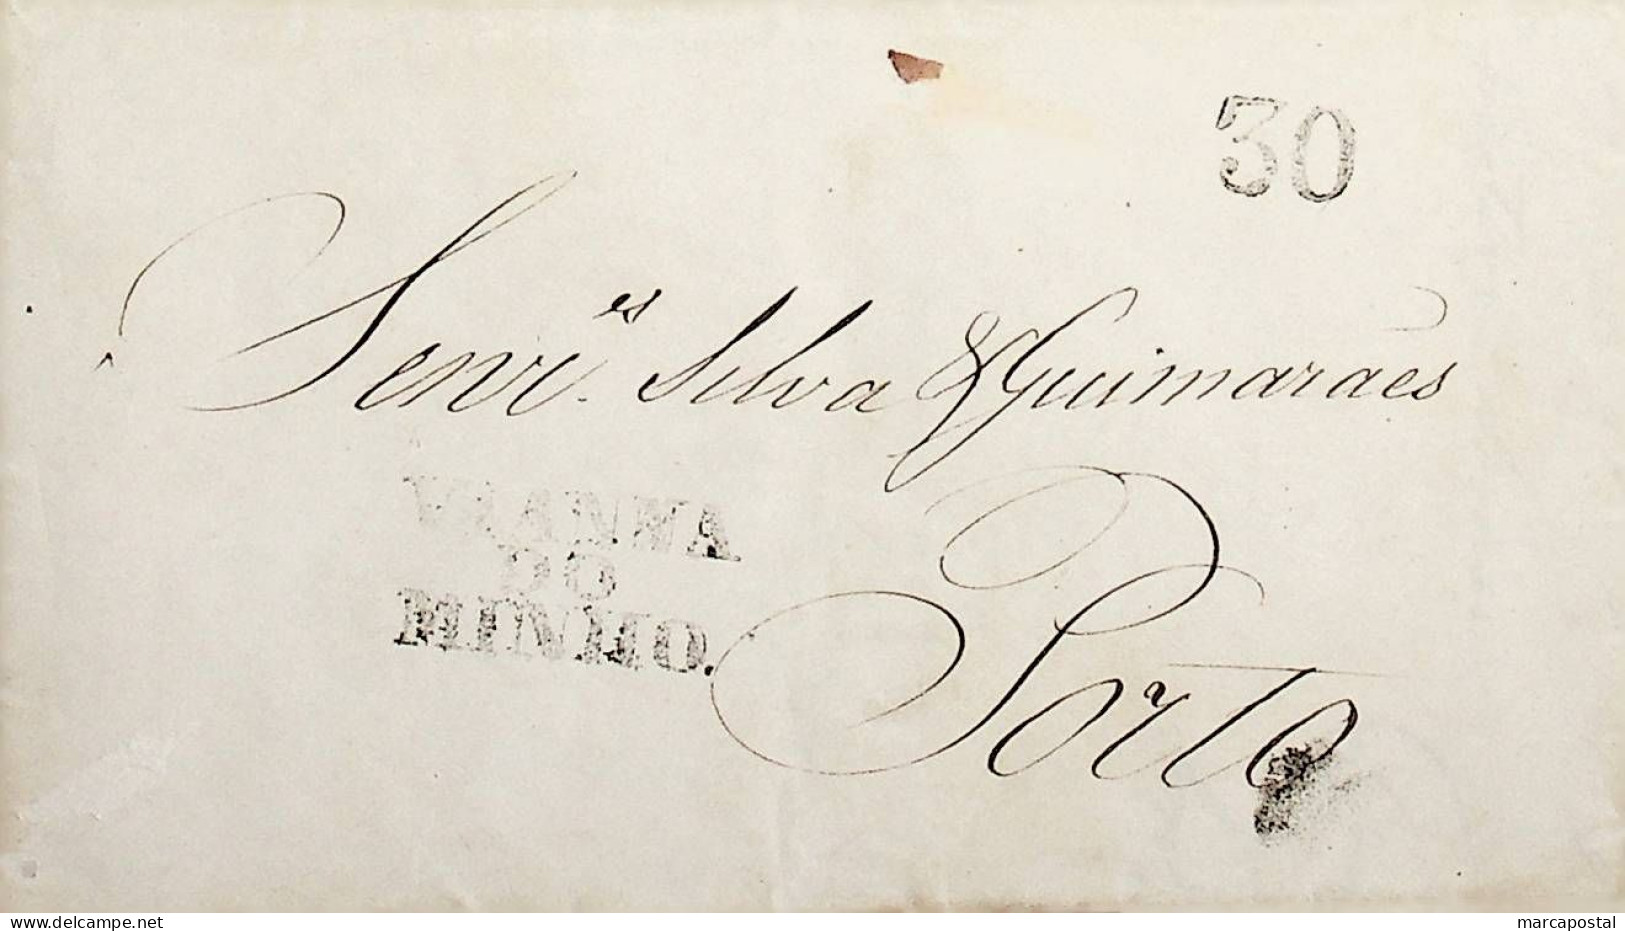 30
Senr.es Silva & Guimarães
VIANNA
DO
MINHO.
Porto
www.delcampe.net
marcapostal